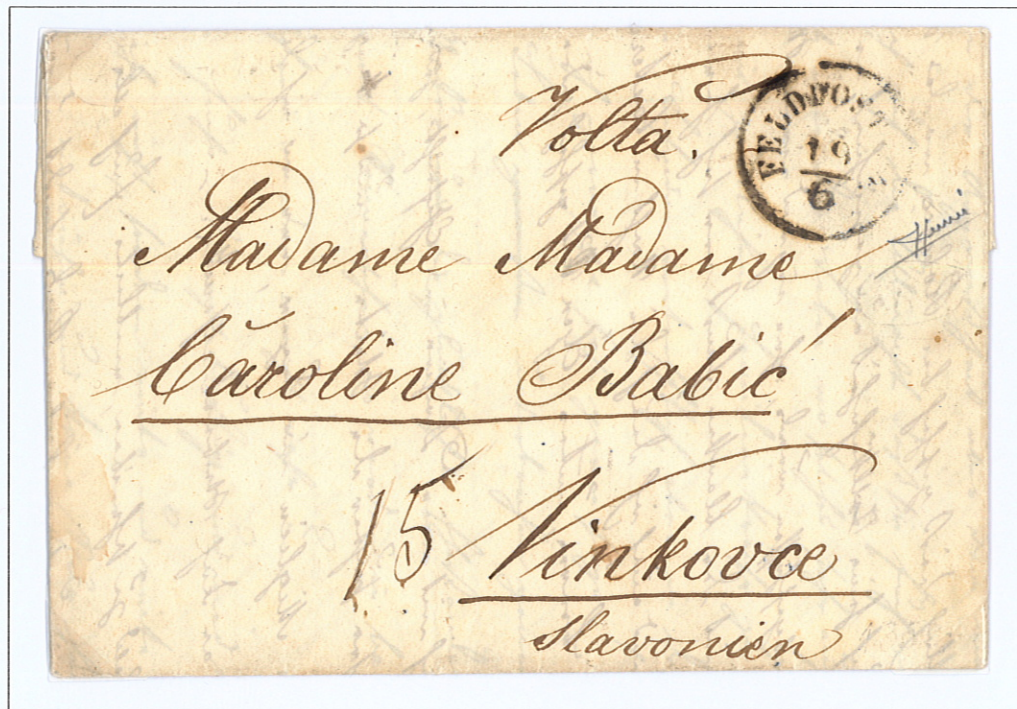 Volta.
FELDPOST
19
6
Madame Madame
Caroline Babić
15 Vinkovce
Slavonien